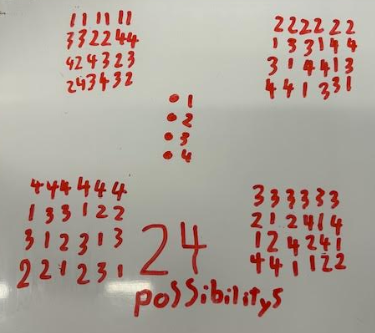 11 11 11
332244
424323
243432
222222
133144
314413
441331
1
2
3
4
444444
133122
312313
221231
333333
212414
124241
441122
24
possibilitys